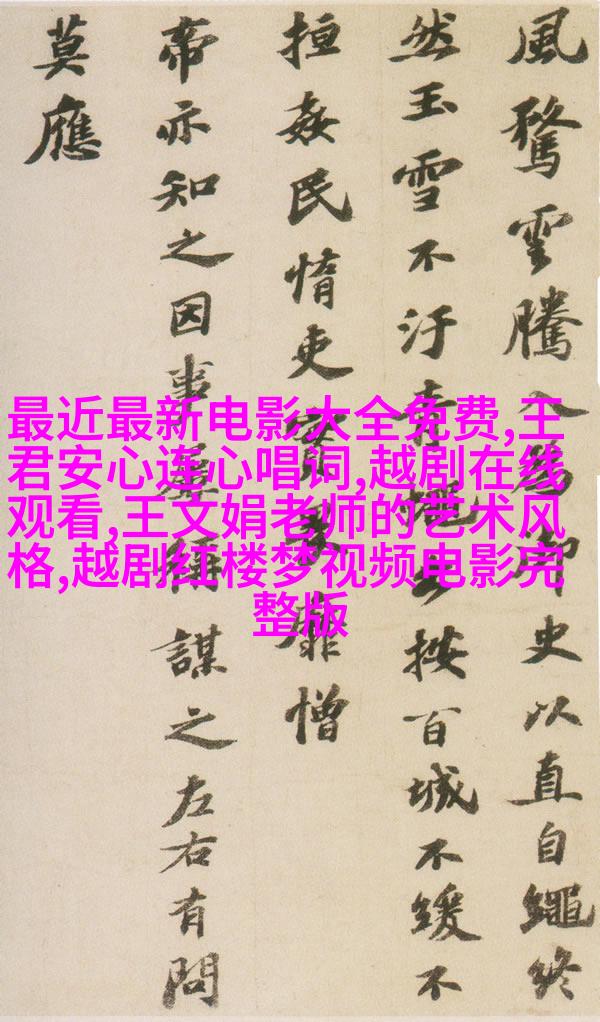 風騖雲騰入為御史以直自繩終
然玉雪不汙青蠅出按百城不緩不
搄姦民惰吏實畏靡憎
帝亦知之因事屢稱謀之左右有問
莫應
最近最新电影大全免费,王
君安心连心唱词,越剧在线
观看,王文娟老师的艺术风
格,越剧红楼梦视频电影完
整版